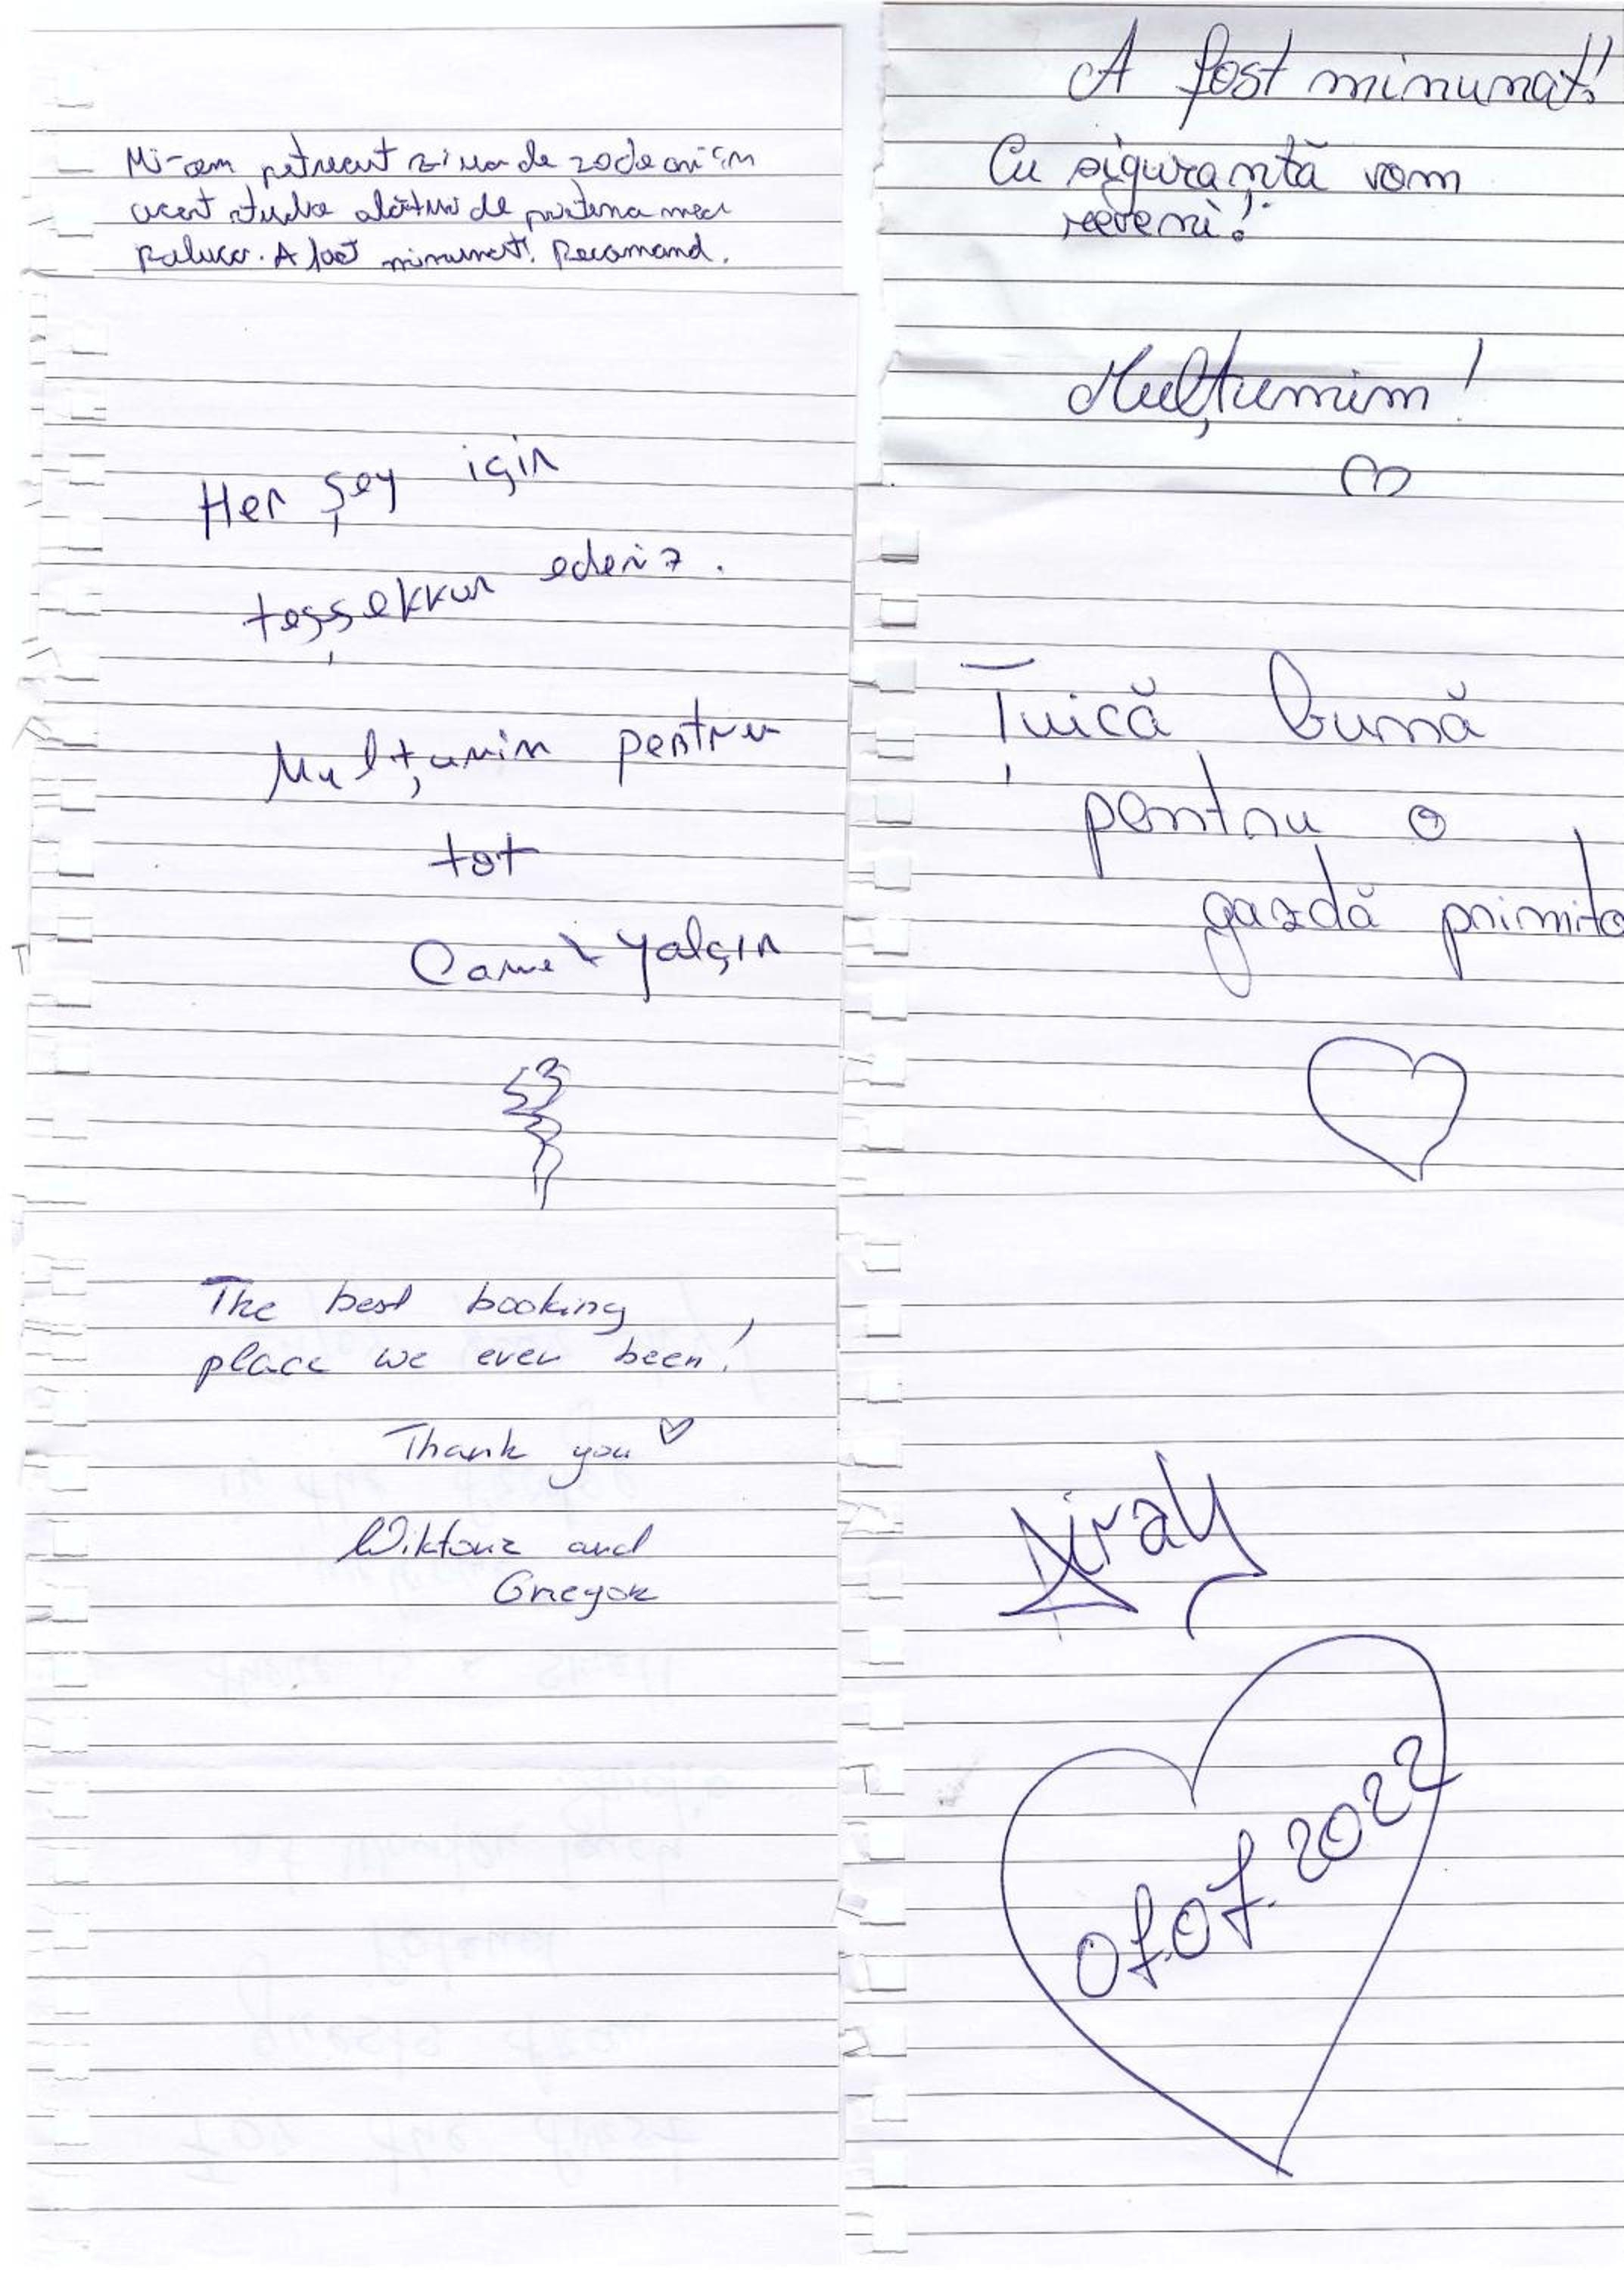 Mi-am petrecut ziua de 20 de ani în
acest studio alături de prietena mea
Raluca. A fost minunat! Recomand.
Her şey için
teşşekkur ederiz.
Mulţumim pentru
tot
Yalçın
The best booking
place we ever been!
Thank you ♡
and
A fost minunat!!
Cu siguranţă vom
reveni!
Mulţumim!
Ţuică bună
pentru o
gazdă primito
Airay
07.07.2022